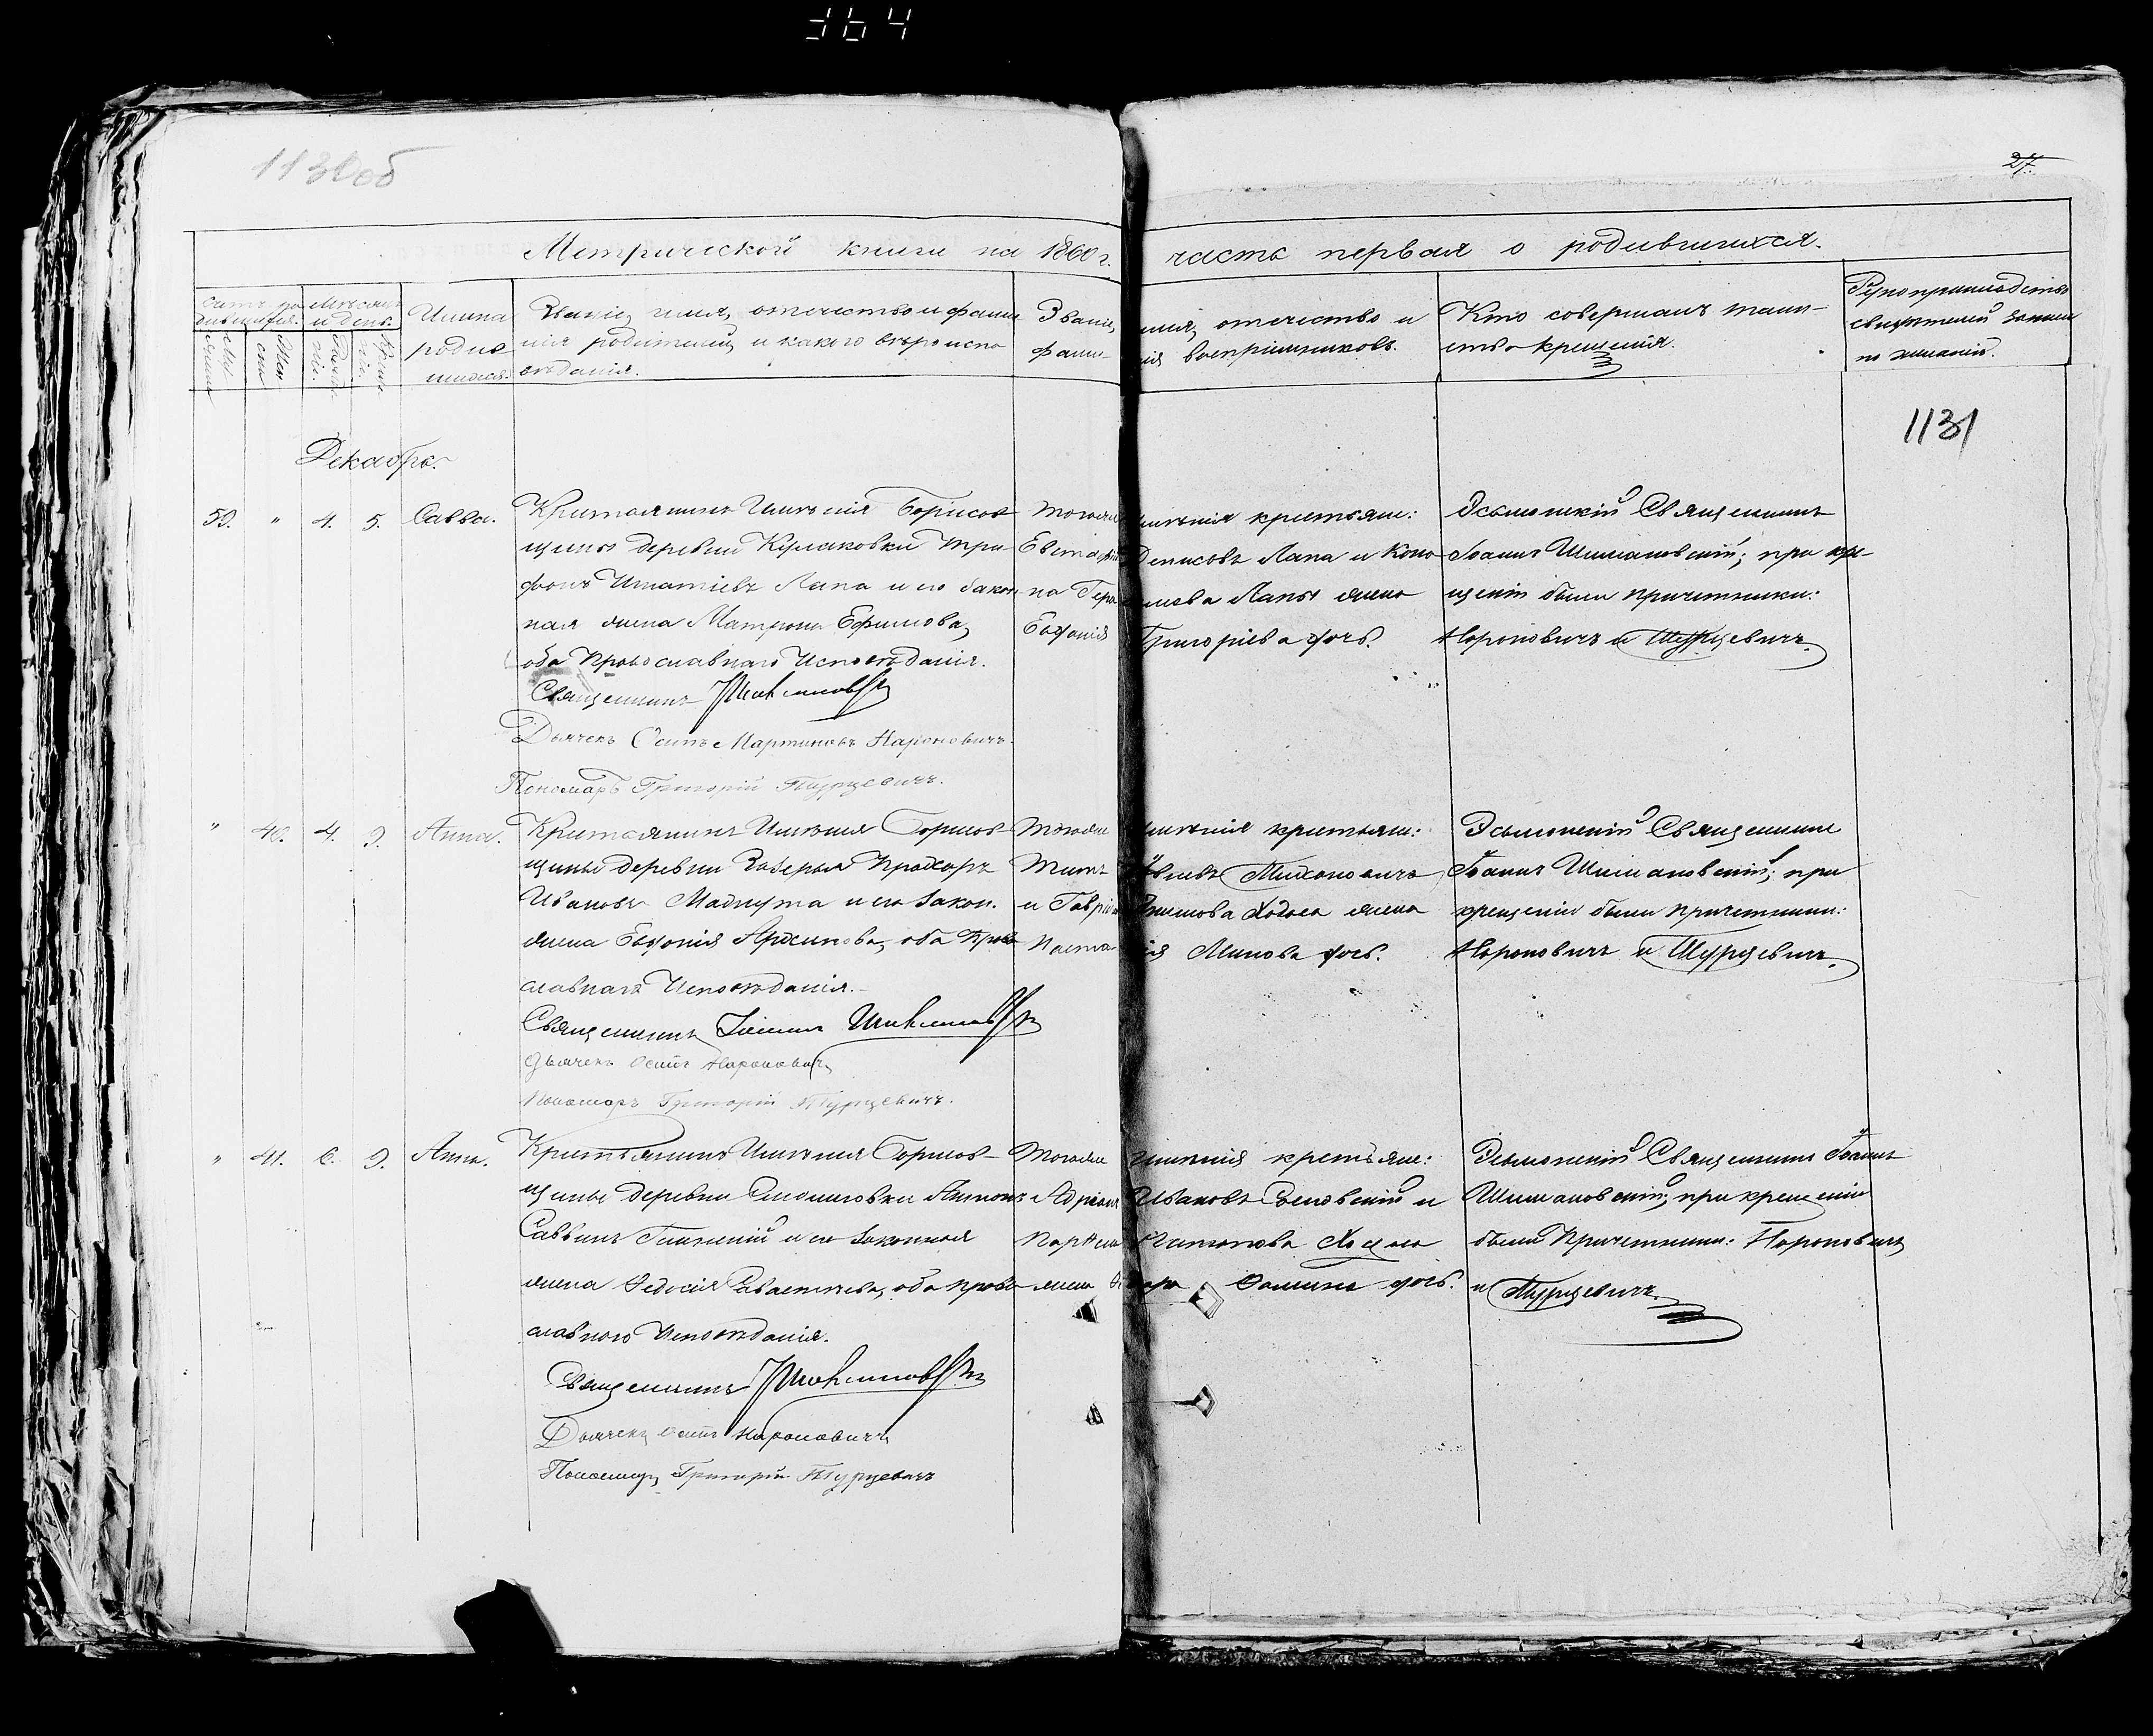 364
1130 об
27
Метрической книги на 1860 г. часть первая о родившихся.
Счетъ родившихся.
Мѣсяцъ и день.
Имена родившихся.
Званіе, имя, отечество и фамилія родителей, и какого вѣроисповѣданія.
Званіе, имя, отечество и фамилія воспріемниковъ.
Кто совершалъ таинство крещенія.
Рукоприкладство свидѣтелей записи по желанію.
1131
Декабрь.
59. " 4. 5. Савва.
Крестьянинъ Имѣнія Борисов-
щины деревни Кулаковки Три-
фонъ Игнатіевъ Лапа и его закон-
ная жена Матрона Ефимова,
оба Православнаго Исповѣданія.
Священникъ
Дьячекъ Осипъ Мартиновъ Нароновичъ.
Пономарь Григорій Турцевичъ.
Тогожъ Имѣнія крестьяне:
Евстафій Денисовъ Лапа и Коно-
на Гера Лапы жена
Евфимія Григоріева дочь.
Священникъ
Іоаннъ Шимановскій; при кре-
щеніи были причетники:
Нароновичъ и Турцевичъ.
" 40. 4. 9. Анна.
Крестьянинъ Имѣнія Борисов-
щины деревни Заозерья Прохоръ
Ивановъ Мацкута и его закон.
жена Евфимія Архипова, оба Право-
славнаго Исповѣданія.
Священникъ Іоаннъ
Дьячекъ Осипъ Нароновичъ
Пономарь Григорій Турцевичъ.
Тогожъ Имѣнія крестьяне:
Титъ Михоновичъ
и Гаврі Ходаса жена
Наста ія Минова дочь.
Священникъ
Іоаннъ Шимановскій; при
крещеніи были причетники:
Нароновичъ и Турцевичъ.
" 41. 6. 9. Анна.
Крестьянинъ Имѣнія Борисов-
щины деревни Антонъ
Саввинъ и его законная
жена Ѳедосія оба Право-
славного Исповѣданія.
Священникъ
Дьячекъ Осипъ Нароновичъ
Пономарь Григорій Турцевичъ
Тогожъ Имѣнія крестьяне:
Адріанъ Ивановъ и
жена Ѳе Ѳомина дочь.
Священникъ Іоаннъ
Шимановскій; при крещеніи
были Причетники: Нароновичъ
и Турцевичъ